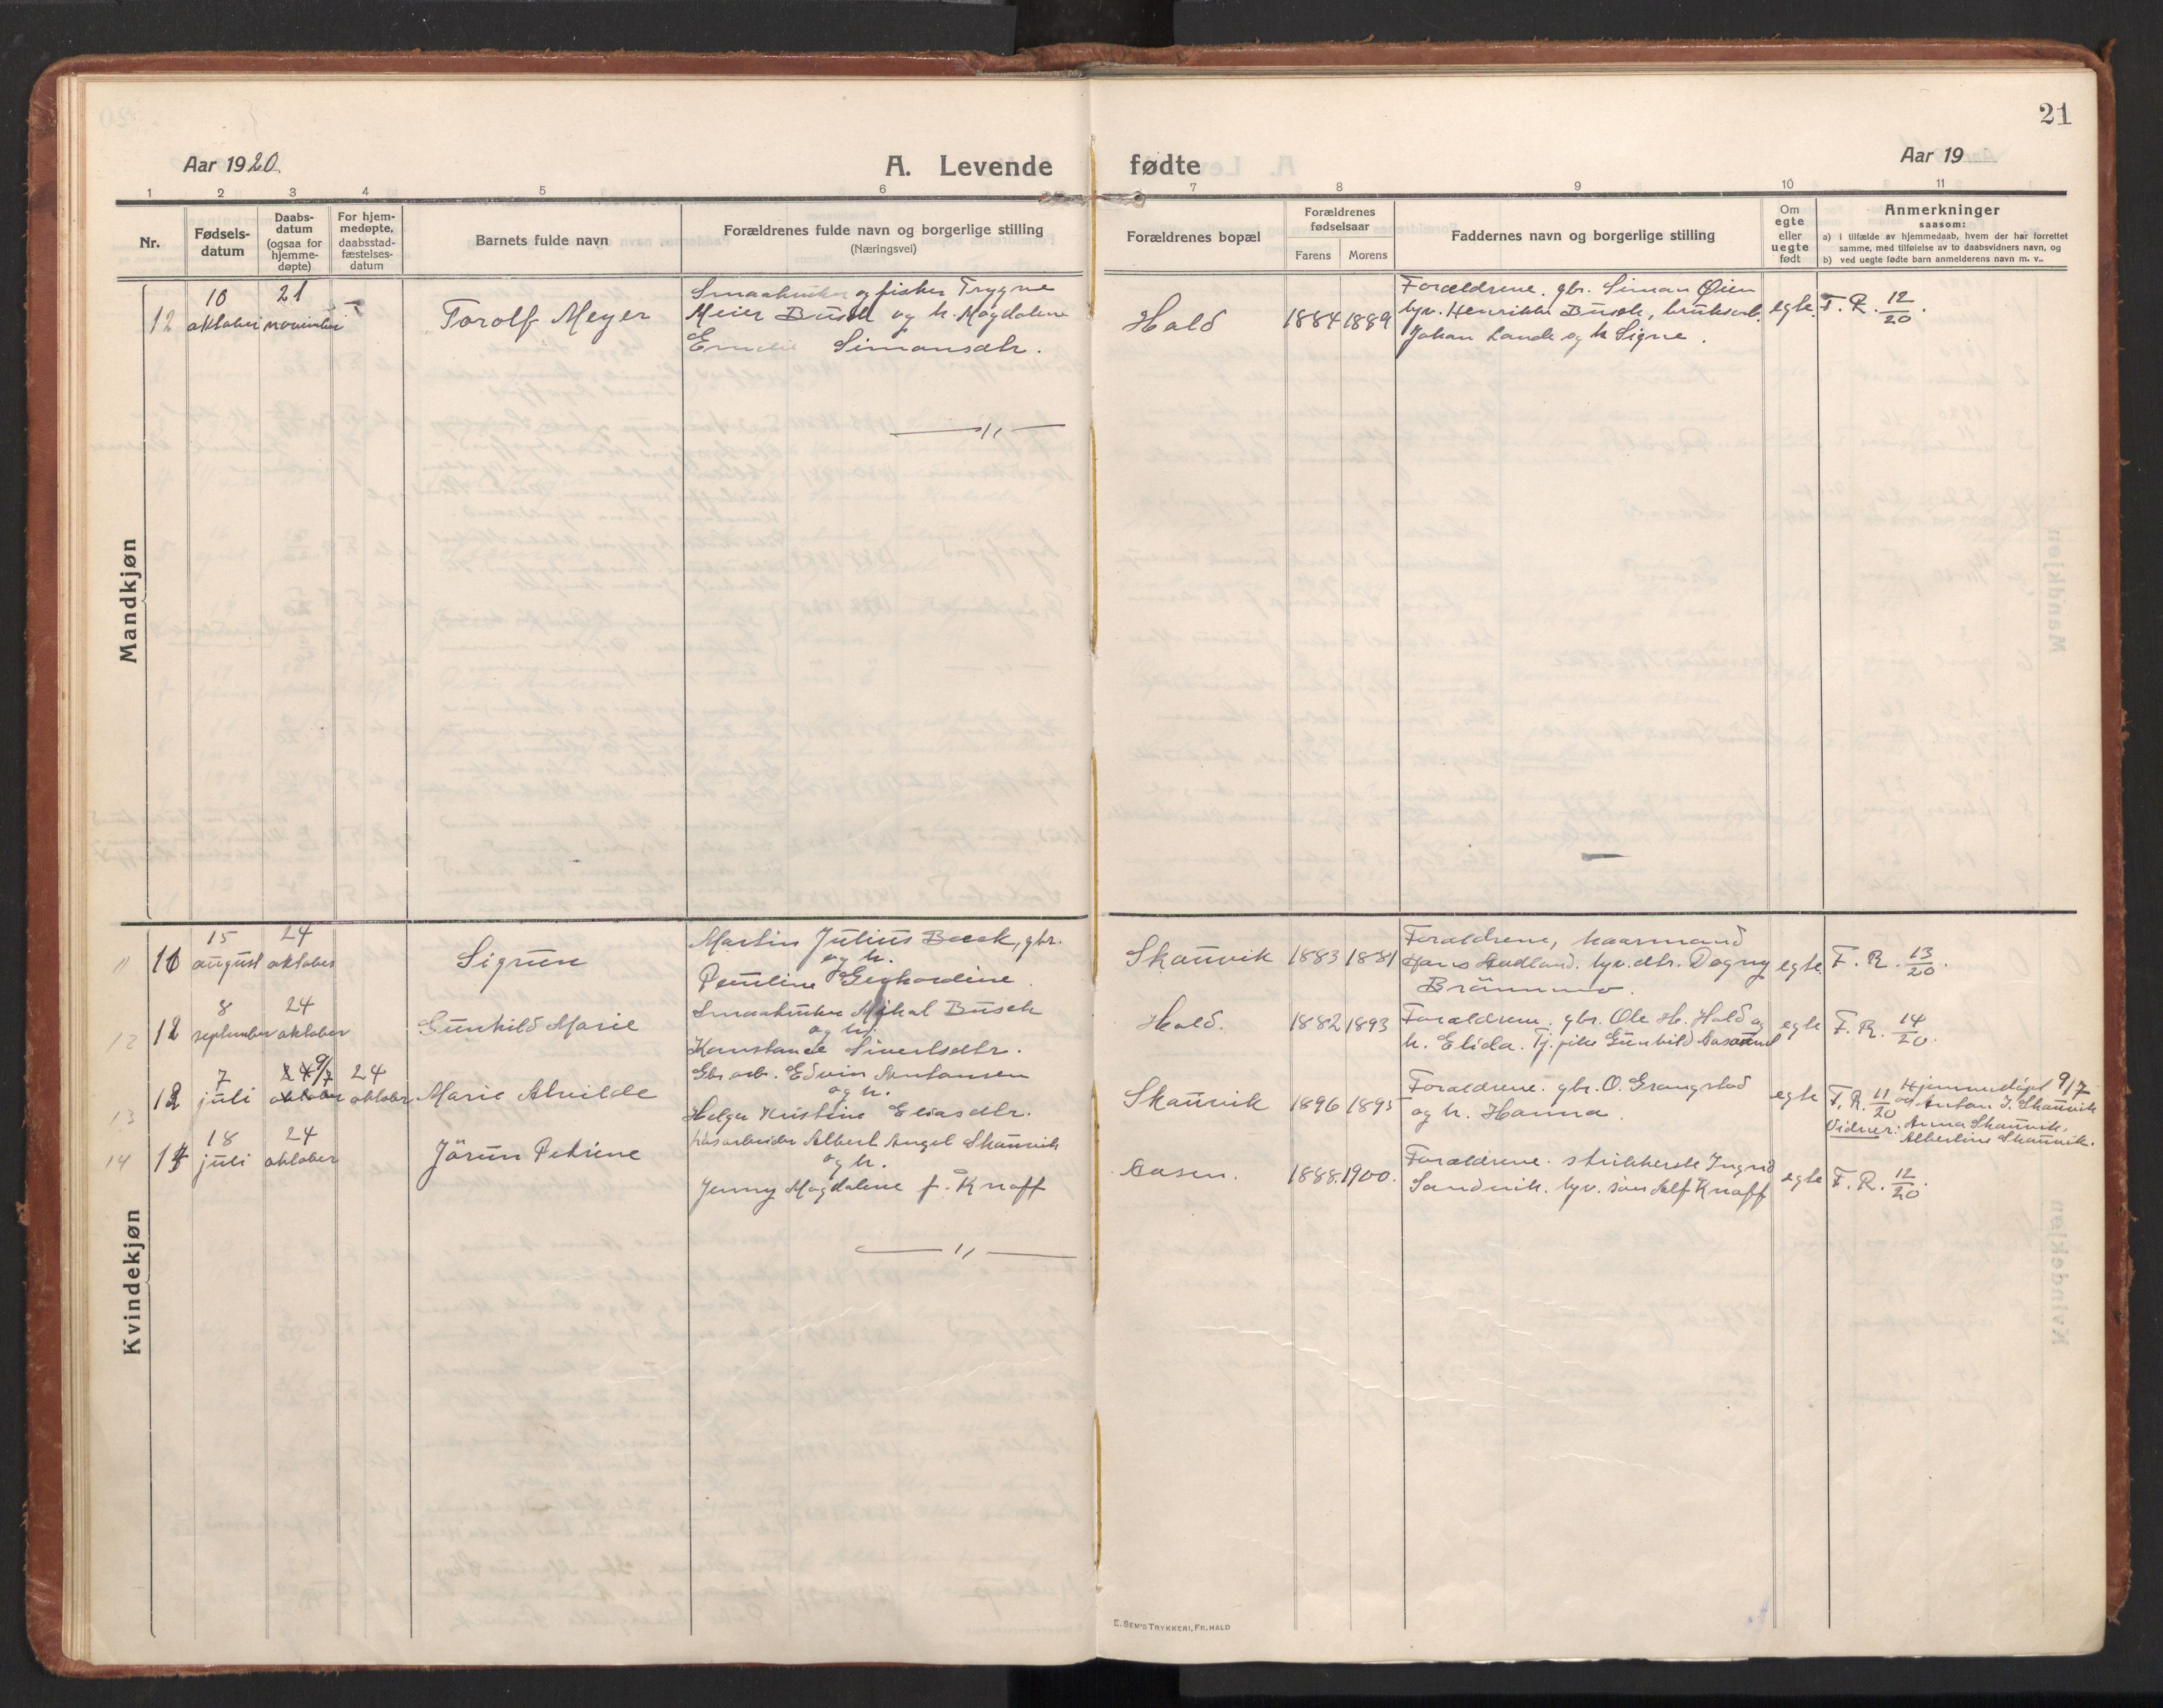 21
Aar 1920.
A. Levende fødte
Aar 19
1 2 3 4 5 6 7 8 9 10 11
Nr.
Fødsels-
datum
Daabs-
datum
(ogsaa for
hjemme-
døpte)
For hjem-
medøpte,
daabsstad-
fæstelses-
datum
Barnets fulde navn
Forældrenes fulde navn og borgerlige stilling
(Næringsvei)
Forældrenes bopæl
Forældrenes
fødselsaar
Farens Morens
Faddernes navn og borgerlige stilling
Om
egte
eller
uegte
født
Anmerkninger
saasom:
a) i tilfælde av hjemmedaab, hvem der har forrettet
samme, med tilføielse av to daabsvidners navn, og
b) ved uegte fødte barn anmelderens navn m. v..
Mandkjøn
12
10
oktober
21
november
Torolf Meyer
Smaabruker og fisker Trygve
Meier Busch og h. Magdalene
Emelie Simonsdtr.
Hald
1884 1889
Forældrene. gbr. Simon Øien
tyv. Henrikke Busch, bruksarb.
Johan Lande og h. Signe.
egte.
F. R. 12/20.
— 11 —
Kvindekjøn
11
15
august
24
oktober
Sigrun
Martin Julius Beck, gbr.
og h.
Pauline Gerhardine.
Skauvik
1883 1881
Forældrene, haarmand
Hans Aadland. tyv. dtr. Dagny
egte
F. R. 13/20.
12
8
september
24
oktober
Gunhild Marie
Smaabruker Mikal Busch
og h.
Konstance Sivertsdtr.
Hald.
1882 1893
Forældrene. gbr. Ole H. Hald og
h. Elida. Tj. pike Gunhild
egte
F. R. 14/20.
13
7
juli
24 9/7
oktober
24
oktober
Marie Alvilde
Gbr arb. Edvin Antonsen
og h.
Helga Kristine Eliasdtr.
Skauvik
1896 1895
Forældrene. gbr. O. Grangstad
og h. Hanna.
egte
F. R. 11/20
Hjemmedøpt 9/7
av Anton J. Skauvik
Vidner: Anna Skauvik,
Albertine Skauvik.
14
18
juli
24
oktober
Jörun Petrine
Albert Angel Skauvik
og h.
Jenny Magdalene f. Knoff
Aasen.
1888. 1900.
Forældrene. strikkerske Ingrid
Sandvik. tyv. søn Alf Knoff
egte
F. R. 12/20.
— 11 —
E. Sem's Trykkeri, Fr.hald